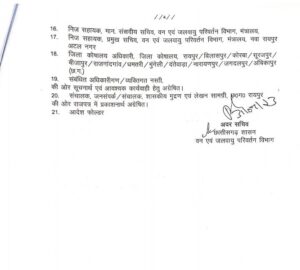 //2//
16. निज सहायक, मान. संसदीय सचिव, वन एवं जलवायु परिवर्तन विभाग, मंत्रालय,
17. निज सहायक, प्रमुख सचिव, वन एवं जलवायु परिवर्तन विभाग, मंत्रालय, नवा रायपुर
अटल नगर
18. जिला कोषालय अधिकारी, जिला कोषालय, रायपुर/बिलासपुर/कोरबा/सूरजपुर/
बीजापुर/राजनांदगांव/धमतरी/मुंगेली/दंतेवाड़ा/नारायणपुर/जगदलपुर/अंबिकापुर
(छ.ग.)
19. संबंधित अधिकारीगण/व्यक्तिगत नस्ती.
की ओर सूचनार्थ एवं आवश्यक कार्यवाही हेतु अग्रेषित।
20. संचालक, जनसंपर्क/संचालक, शासकीय मुद्रण एवं लेखन सामग्री, छ0ग0 रायपुर
की ओर राजपत्र में प्रकाशनार्थ अग्रेषित।
21. आदेश फोल्डर
अवर सचिव
छत्तीसगढ़ शासन
वन एवं जलवायु परिवर्तन विभाग